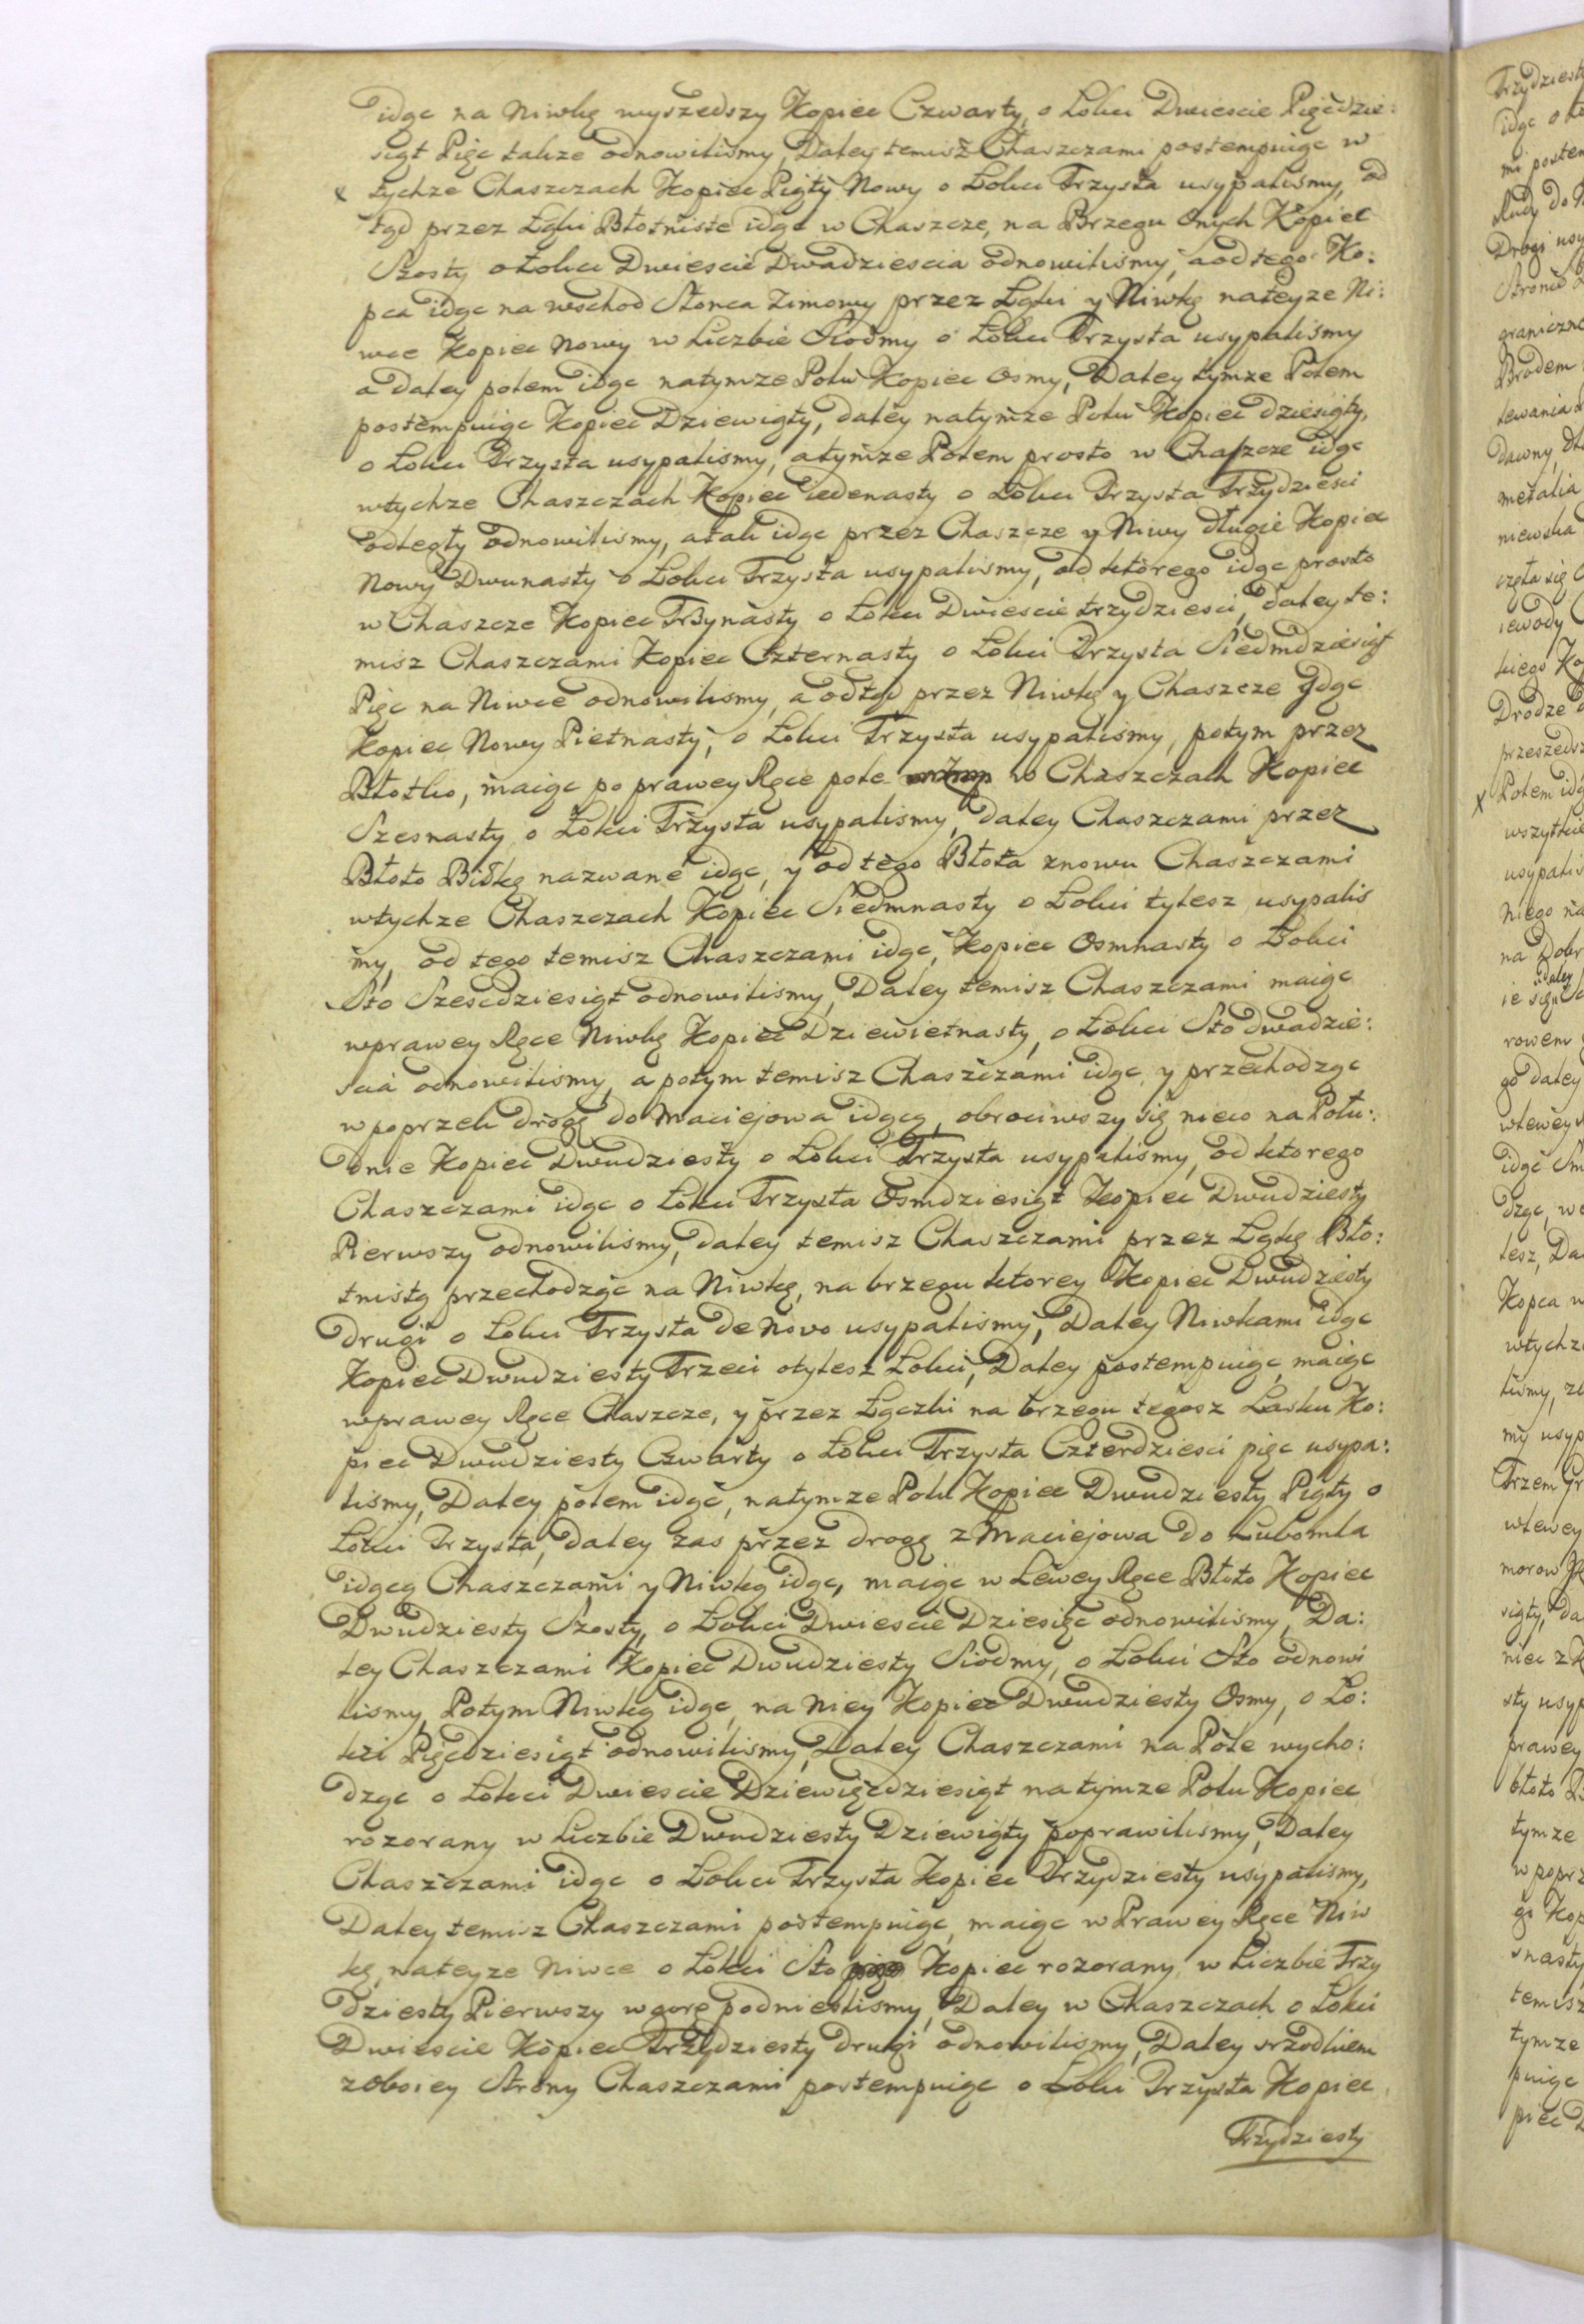 idąc na Niwkę wyszedszy Kopiec Czwarty, o Łokci Dwiescie Pięcdzie:
siąt Pięc także odnowilismy, Daley temisz Chaszczami postempuiąc w
x tychze Chaszczach Kopiec Piąty Nowy o Łokci Trzysta usypalismy, od
tąd przez Łąki Błotniste idąc w Chaszcze, na Brzegu onych Kopiec
Szosty o Łokci Dwiescie Dwadziescia odnowilismy, a od tego Ko:
pca idąc na wschod Słonca Zimowy przez Łąki y Niwkę na teyze Ni:
wce Kopiec Nowy w Liczbie Siodmy o Łokci Trzysta usypalismy
a daley polem idąc natymze Polu Kopiec Osmy, Daley tymze Polem
postempuiąc Kopiec Dziewiąty, daley natymze Polu Kopiec dziesiąty,
o Łokci Trzysta usypalismy, atymze Polem prosto w Chaszcze idąc
wtychze Chaszczach Kopiec iedenasty o Łokci Trzysta Trzydziesci
odległy odnowilismy, atak idąc przez Chaszcze y Niwy długie Kopiec
Nowy Dwunasty o Łokci Trzysta usypalismy, od ktorego idąc prosto
w Chaszcze Kopiec Trzynasty o Łokci Dwiescie trzydziesci, daley te:
misz Chaszczami Kopiec Czternasty o Łokci Trzysta Siedmdziesiąt
Pięc na Niwce odnowilismy, a odtąd przez Niwkę y Chaszcze Jdąc
Kopiec Nowy Pietnasty, o Łokci Trzysta usypalismy, potym przez
Błotko, maiąc po prawey Ręce pole w Chaszczach Kopiec
Szesnasty o Łokci Trzysta usypalismy, daley Chaszczami przez
Błoto Bidkę nazwane idąc, y od tego Błota znowu Chaszczami
wtychze Chaszczach Kopiec Siedmnasty o Łokci tylesz usypalis
my, od tego temisz Chaszczami idąc, Kopiec Osmnasty o Łokci
Sto Szescdziesiąt odnowilismy, Daley temisz Chaszczami maiąc
wprawey Ręce Niwkę Kopiec Dziewietnasty, o Łokci Sto dwadzie:
scia odnowilismy, a potym temisz Chaszczami idąc, y przechodząc
wpoprzek drogę do Maciejowa idącą, obrociwszy się nieco na Połu:
dnie Kopiec Dwudziesty o Łokci Trzysta usypalismy, od ktorego
Chaszczami idąc o Łokci Trzysta Osmdziesiąt Kopiec Dwudziesty
Pierwszy odnowilismy, daley temisz Chaszczami przez Łąkę Bło:
tnistą przechodząc na Niwkę, na brzegu ktorey Kopiec Dwudziesty
drugi o Łokci Trzysta de Novo usypalismy, Daley Niwkami idąc
Kopiec Dwudziesty Trzeci otylesz Łokci, Daley postempuiąc, maiąc
wprawey Ręce Chaszcze, y przez Łączki na brzegu tegosz Lasku Ko:
piec Dwudziesty Czwarty o Łokci Trzysta Czterdziesci pięc usypa:
lismy, Daley polem idąc, natymze Polu Kopiec Dwudziesty Piąty o
Łokci Trzysta, daley zas przez drogę z Maciejowa do Lubomla
idącą Chaszczami y Niwką idąc, maiąc w Lewey Ręce Błoto Kopiec
Dwudziesty Szosty, o Łokci Dwiescie Dziesięc odnowilismy, Da:
ley Chaszczami Kopiec Dwudziesty Siodmy, o Łokci Sto odnowi
lismy, Potym Niwką idąc, na Niey Kopiec Dwudziesty Osmy, o Ło:
kci Pięcdziesiąt odnowilismy, Daley Chaszczami na Pole wycho:
dząc o Łokci Dwiescie Dziewięcdziesiąt natymze Polu Kopiec
rozorany w Liczbie Dwudziesty Dziewiąty poprawilismy, Daley
Chaszczami idąc o Łokci Trzysta Kopiec Trzydziesty usypalismy,
Daley temisz Chaszczami postempuiąc, maiąc w Prawey Ręce Niw
kę, nateyze Niwce o Łokci Sto Kopiec rozorany, w Liczbie Trzy
dziesty Pierwszy wgorę podnieslismy, Daley w Chaszczach o Łokci
Dwiescie Kopiec Trzydziesty drugi odnowilismy, Daley srzodkiem
zoboiey Strony Chaszczami postempuiąc o Łokci Trzysta Kopiec
Trzydziesty